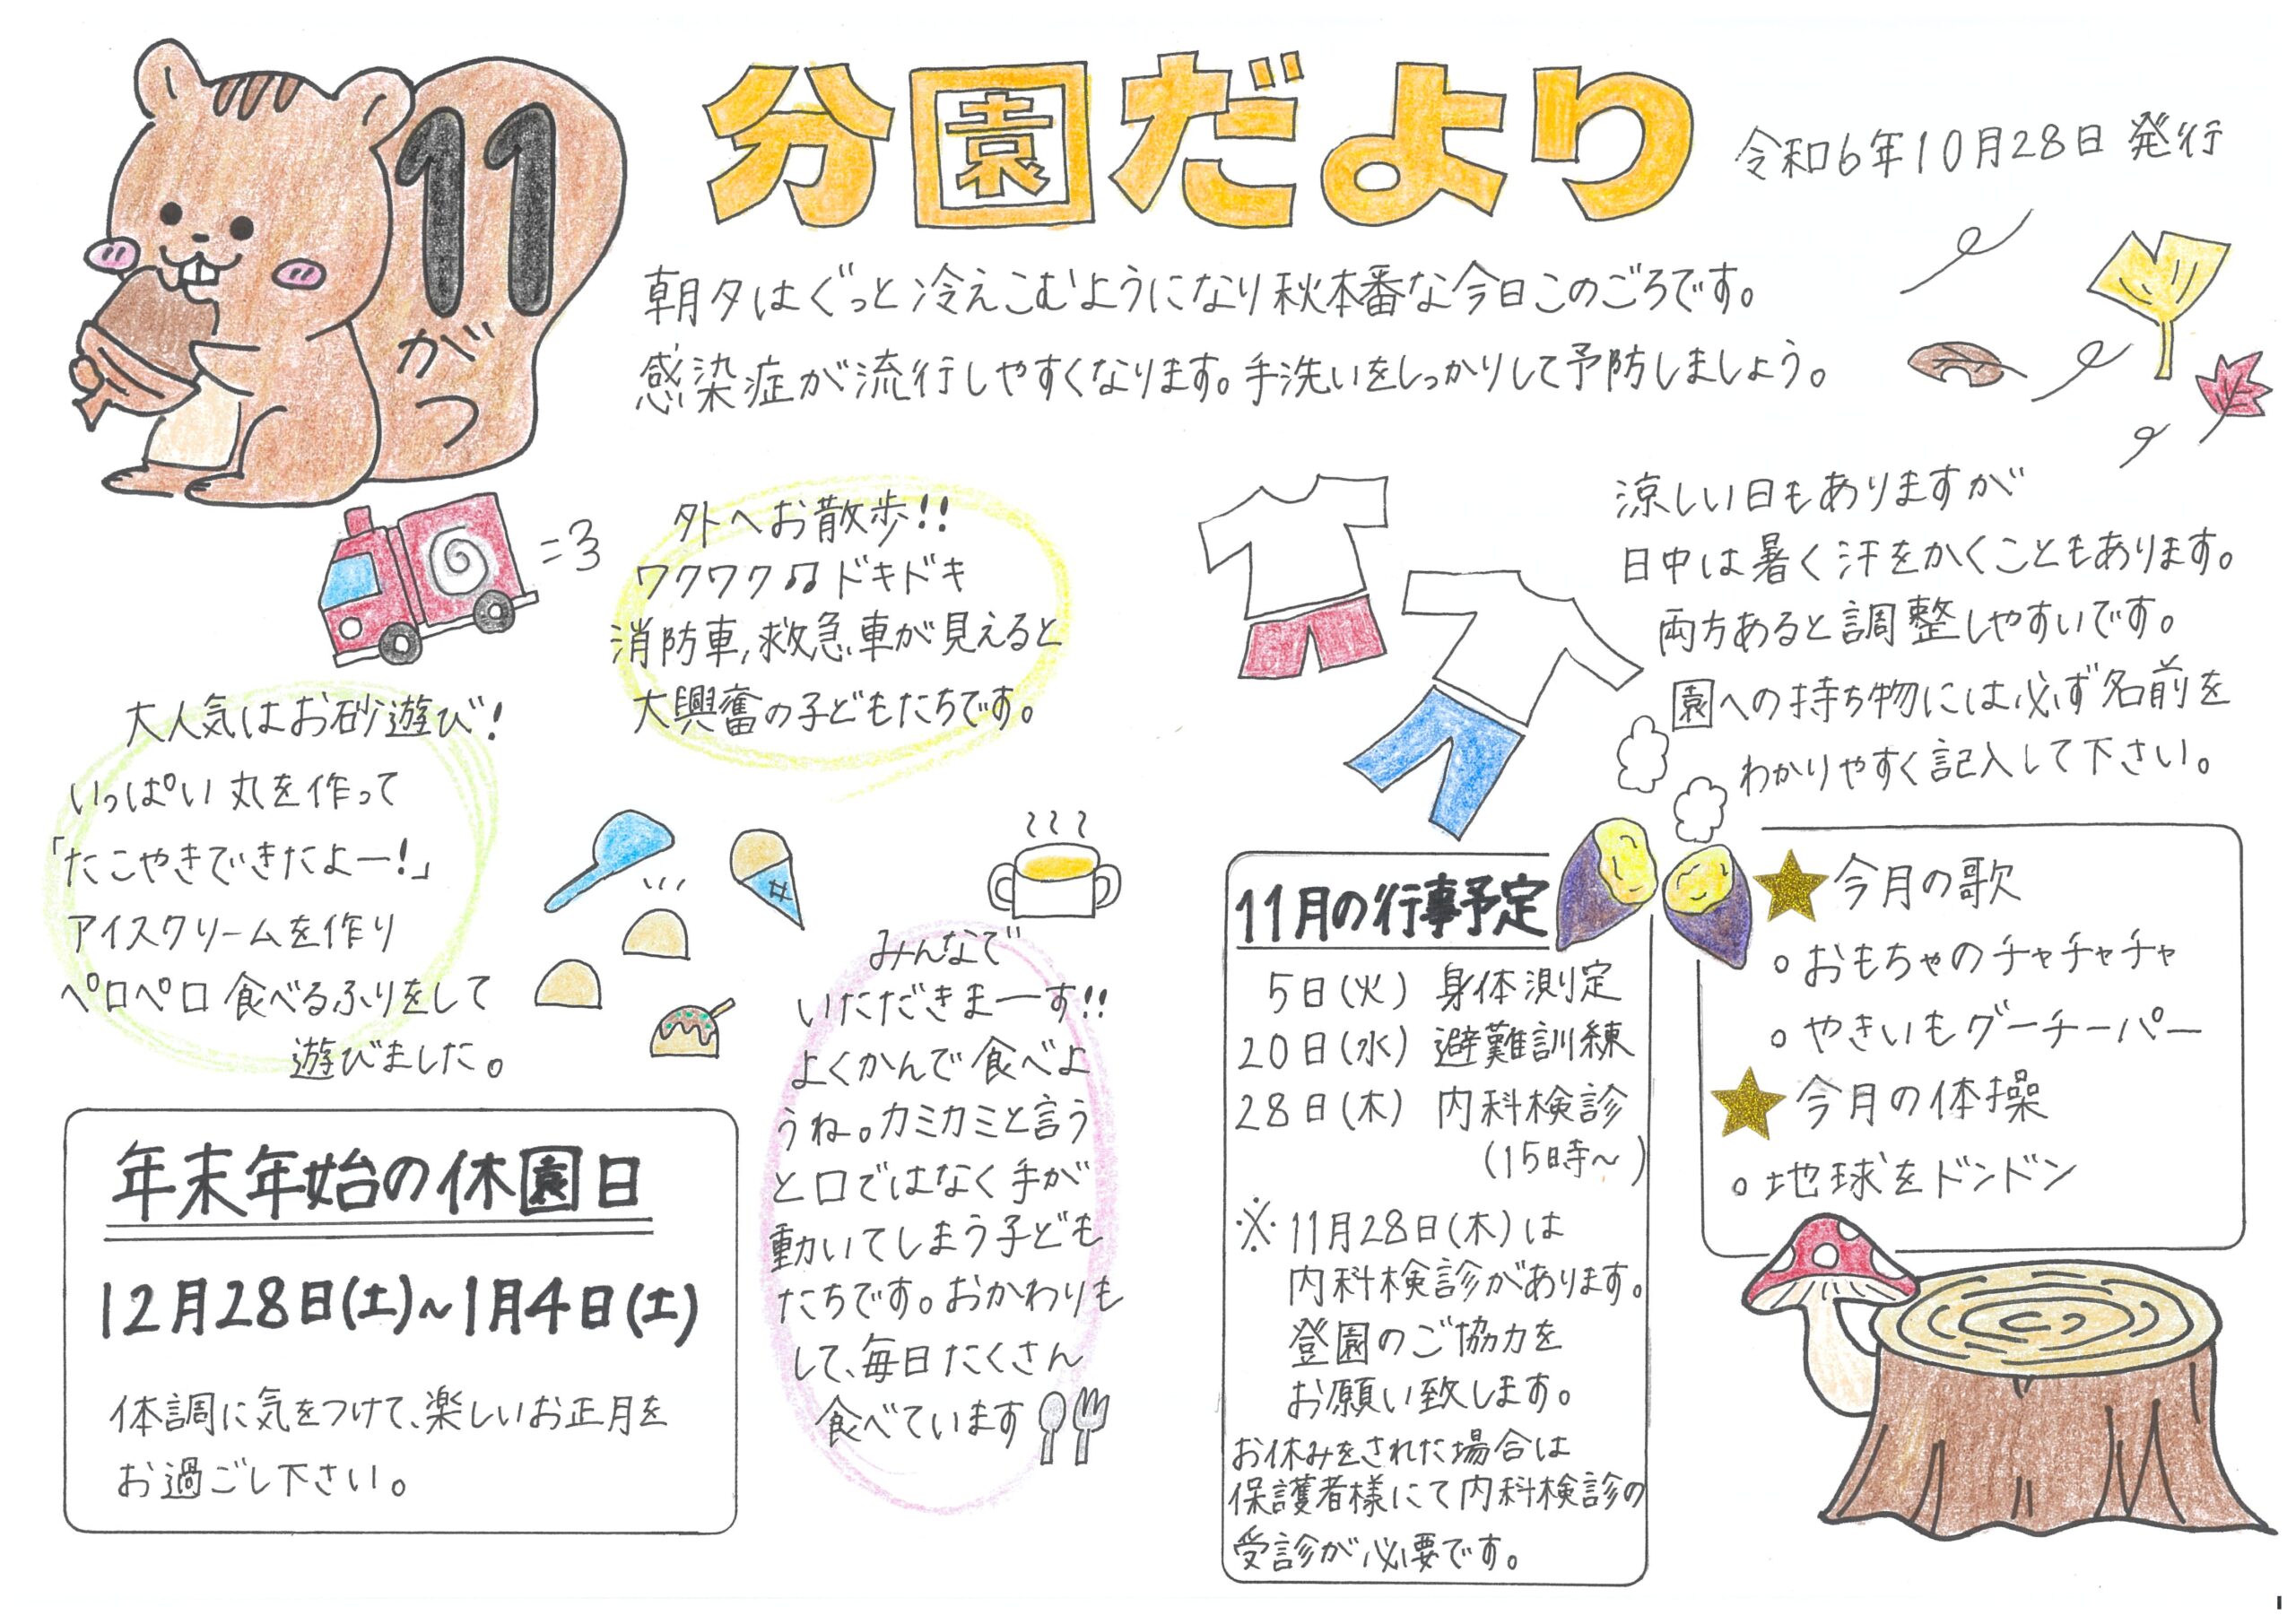 11
がつ
分園だより
令和6年10月28日 発行
朝夕はぐっと冷えこむようになり秋本番な今日このごろです。
感染症が流行しやすくなります。手洗いをしっかりして予防しましょう。
外へお散歩!!
ワクワク♫ドキドキ
消防車,救急車が見えると
大興奮の子どもたちです。
大人気はお砂遊び!
いっぱい丸を作って
「たこやきできたよー!」
アイスクリームを作り
ペロペロ食べるふりをして
遊びました。
みんなで
いただきまーす!!
よくかんで食べよ
うね。カミカミと言う
と口ではなく手が
動いてしまう子ども
たちです。おかわりも
して、毎日たくさん
食べています
年末年始の休園日
12月28日(土)~1月4日(土)
体調に気をつけて、楽しいお正月を
お過ごし下さい。
涼しい日もありますが
日中は暑く汗をかくこともあります。
両方あると調整しやすいです。
園への持ち物には必ず名前を
わかりやすく記入して下さい。
11月の行事予定
5日(火) 身体測定
20日(水) 避難訓練
28日(木) 内科検診
(15時~)
※11月28日(木)は
内科検診があります。
登園のご協力を
お願い致します。
お休みをされた場合は
保護者様にて内科検診の
受診が必要です。
★今月の歌
○おもちゃのチャチャチャ
○やきいもグーチーパー
★今月の体操
○地球をドンドン